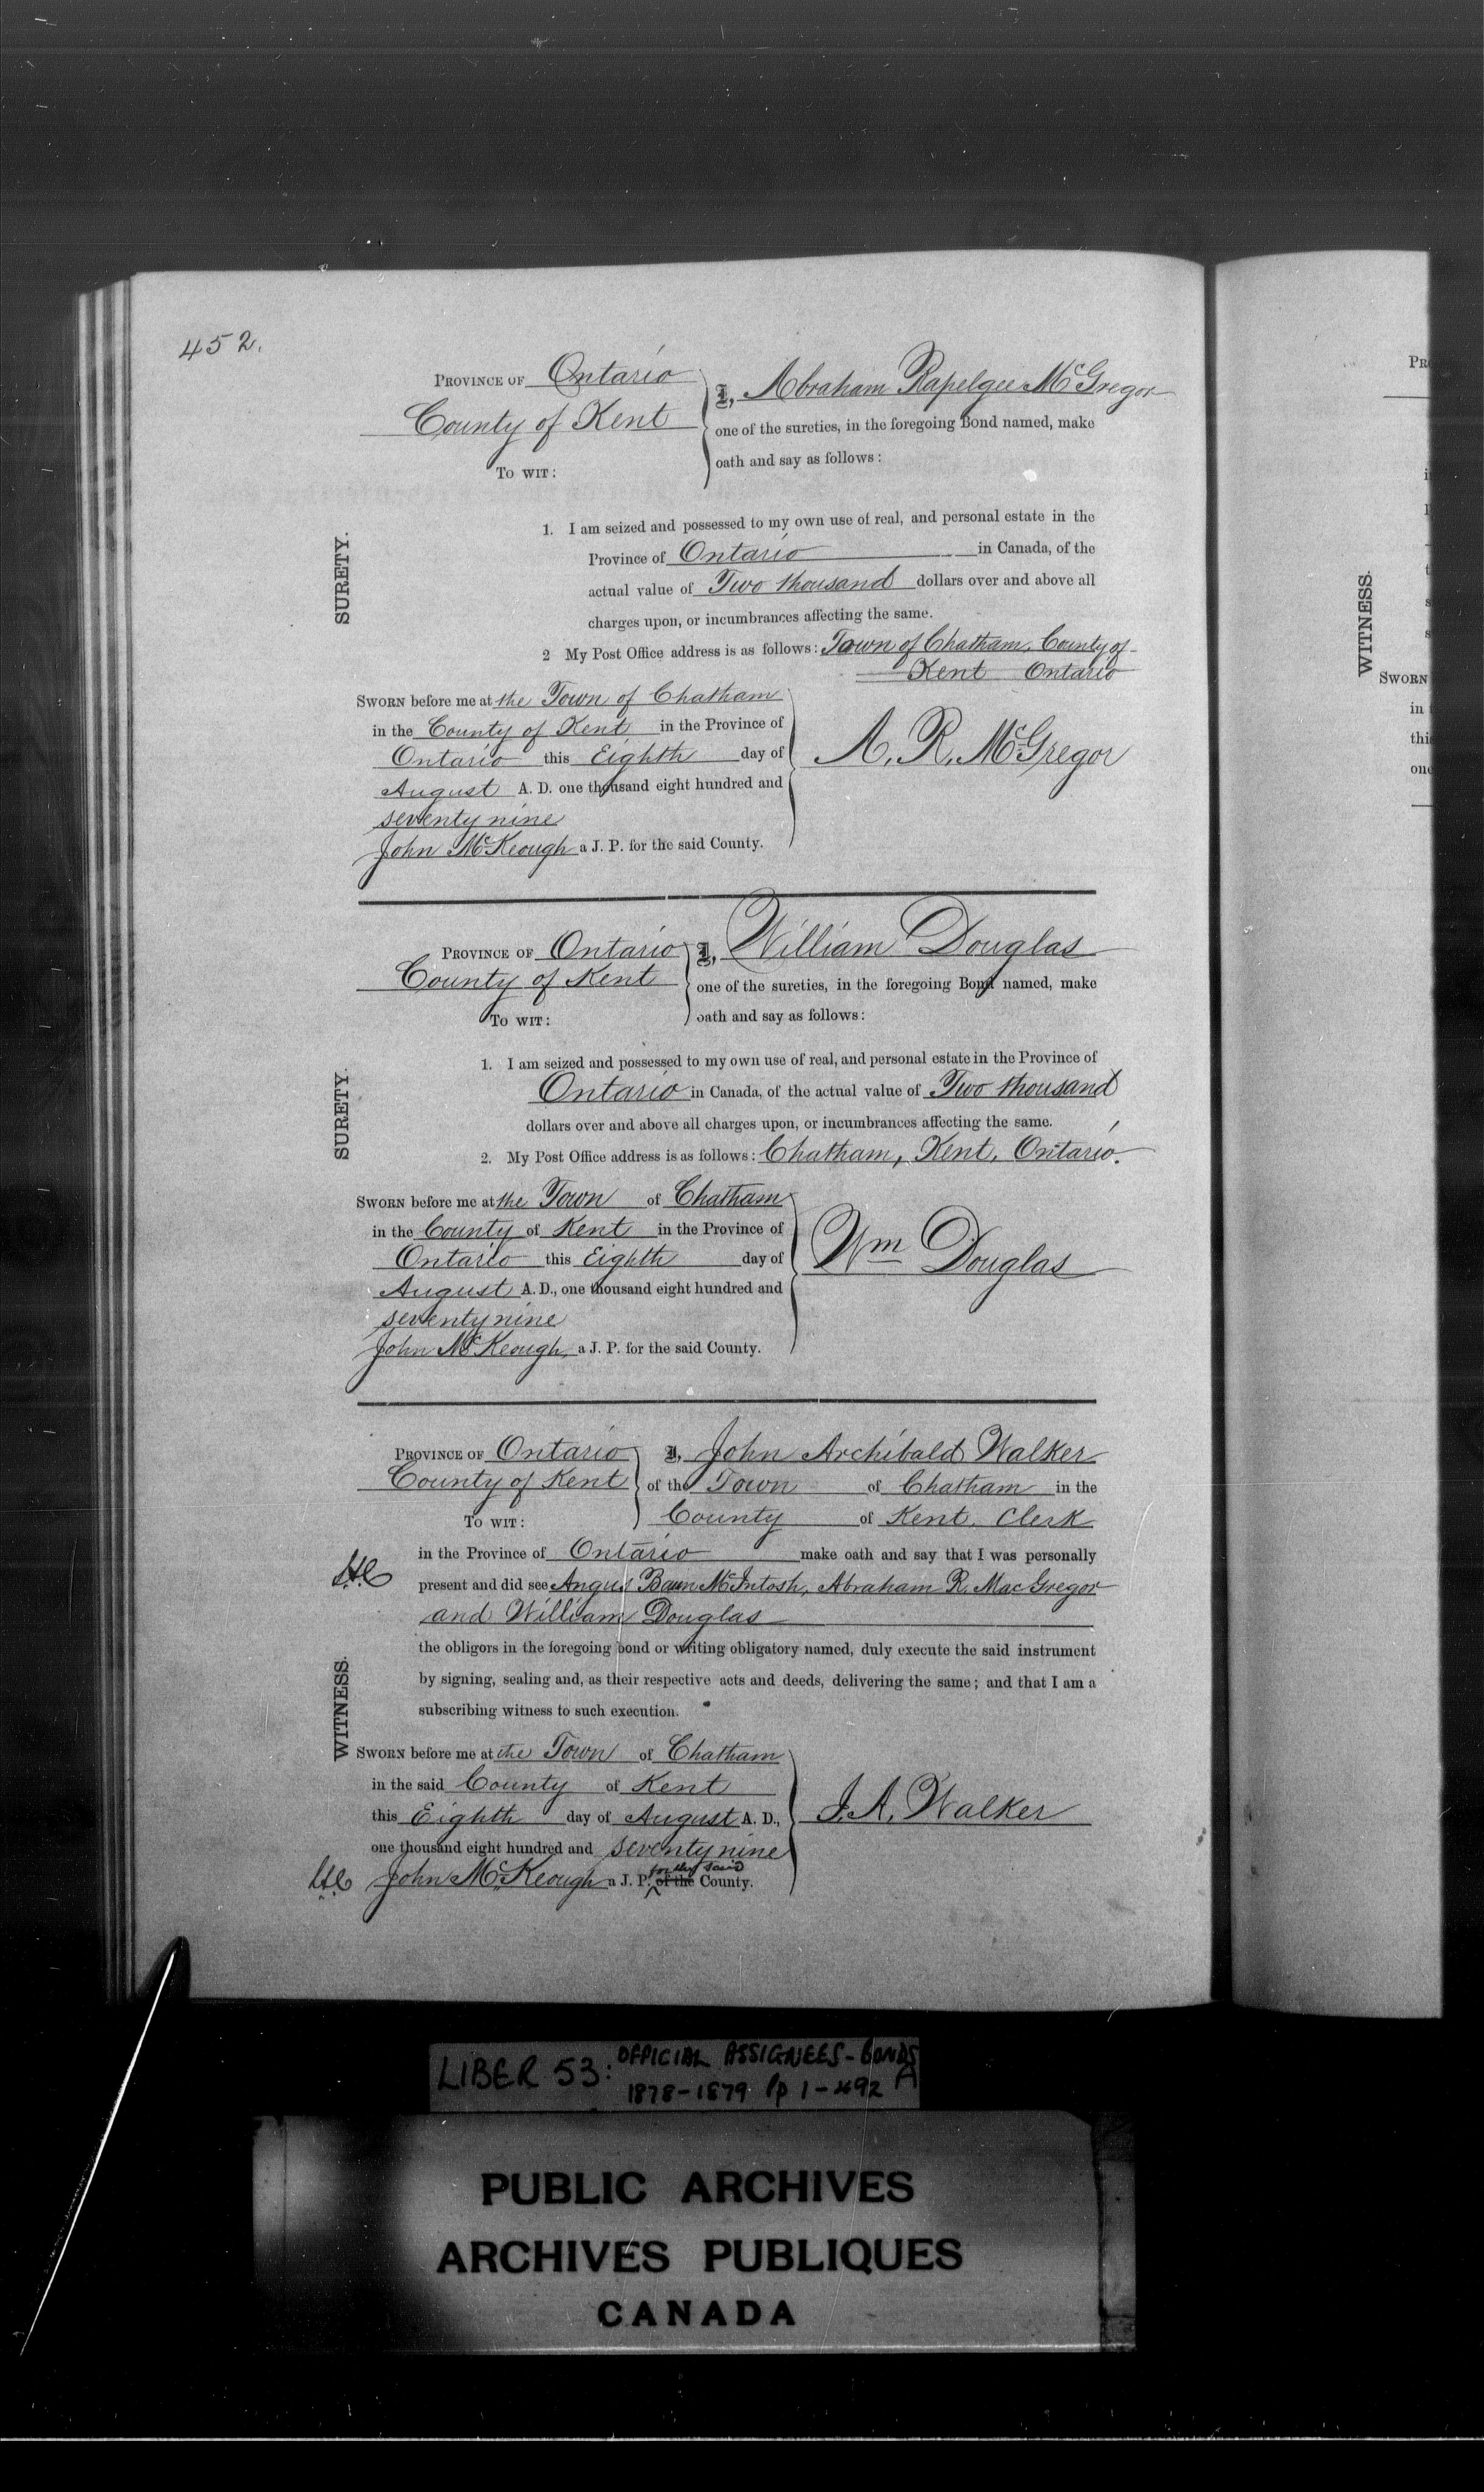 452.
PROVINCE OF Ontario
County of Kent
TO WIT:
I, Abraham Rapelgee McGregor
one of the sureties, in the foregoing Bond named, make
oath and say as follows:
SURETY.
1. I am seized and possessed to my own use of real, and personal estate in the
Province of Ontario in Canada, of the
actual value of Two thousand dollars over and above all
charges upon, or incumbrances affecting the same.
2 My Post Office address is as follows: Town of Chatham, County of
Kent Ontario
SWORN before me at the Town of Chatham
in the County of Kent in the Province of
Ontario this Eighth day of
August A. D. one thousand eight hundred and
seventy nine
John McKeough a J. P. for the said County.
A. R. McGregor
PROVINCE OF Ontario
County of Kent
TO WIT:
I, William Douglas
one of the sureties, in the foregoing Bond named, make
oath and say as follows:
SURETY.
1. I am seized and possessed to my own use of real, and personal estate in the Province of
Ontario in Canada, of the actual value of Two thousand
dollars over and above all charges upon, or incumbrances affecting the same.
2. My Post Office address is as follows: Chatham, Kent, Ontario.
SWORN before me at the Town of Chatham
in the County of Kent in the Province of
Ontario this Eighth day of
August A. D., one thousand eight hundred and
seventy nine
John McKeough a J. P. for the said County.
Wm Douglas
PROVINCE OF Ontario
County of Kent
TO WIT:
I, John Archibald Walker
of the Town of Chatham in the
County of Kent, Clerk
in the Province of Ontario make oath and say that I was personally
present and did see Angus McIntosh, Abraham R. MacGregor
and William Douglas
the obligors in the foregoing bond or writing obligatory named, duly execute the said instrument
by signing, sealing and, as their respective acts and deeds, delivering the same; and that I am a
subscribing witness to such execution.
WITNESS.
SWORN before me at the Town of Chatham
in the said County of Kent
this Eighth day of August A. D.,
one thousand eight hundred and seventy nine
for the said
John McKeough a J. P. of the County.
J. A. Walker
PR
WITNESS.
SWORN
in
thi
one
LIBER 53: OFFICIAL ASSIGNEES - BONDS
1878-1879 pp 1-492 A
PUBLIC ARCHIVES
ARCHIVES PUBLIQUES
CANADA